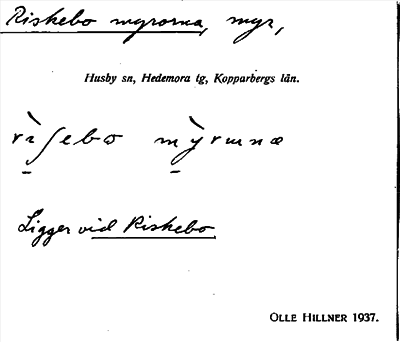 Riskebo myrorna, myr,
Husby sn, Hedemora tg, Kopparbergs län.
Ligger vid Riskebo
OLLE HILLNER 1937.